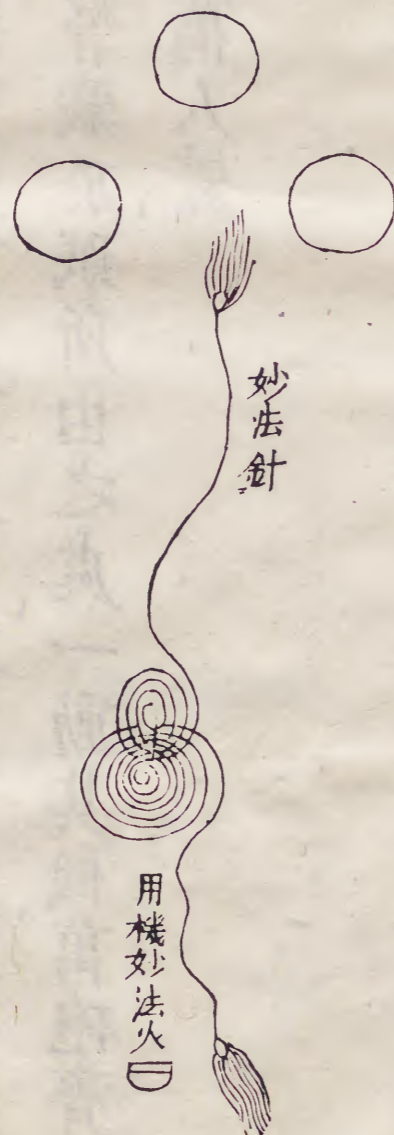 妙法針
用機妙法火